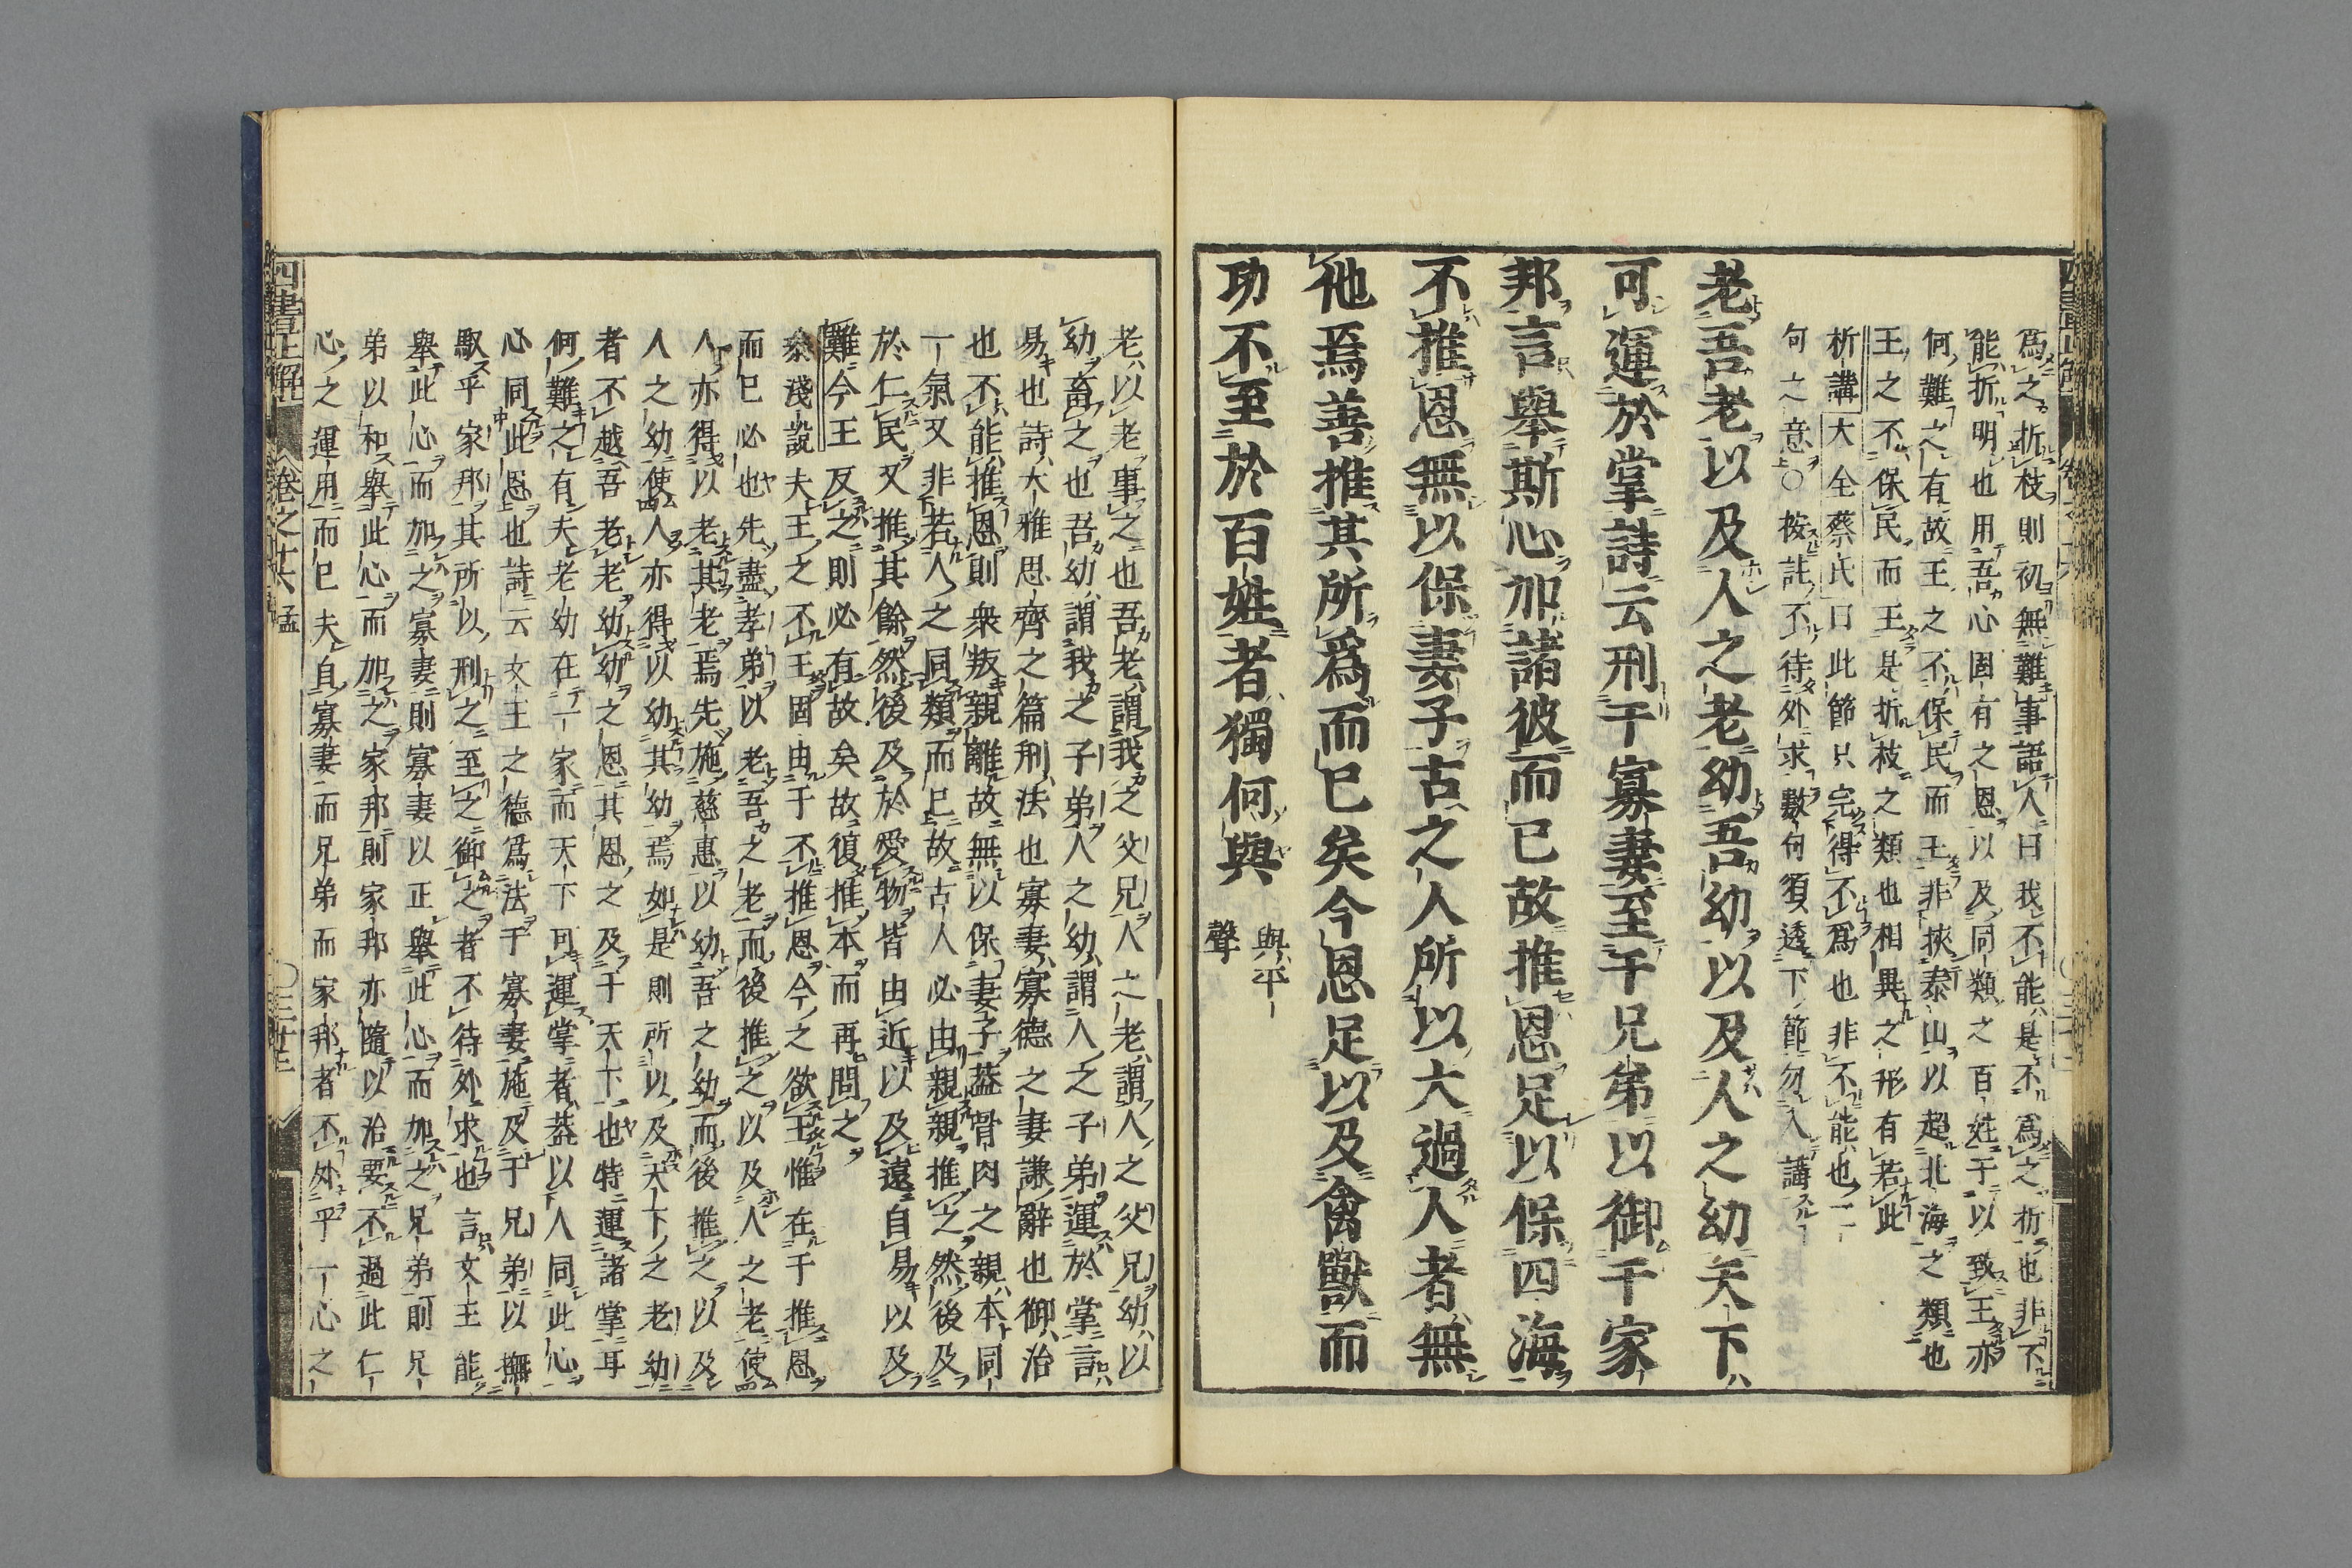 爲之折枝則初無難事語人曰我不能是不爲之折也非不
能折明也用吾心固有之恩以及同類之百姓于以致王亦
何難之有故王之不保民而王非挾泰山以超北海之類也
王之不保民而王是折枝之類也相異之形有若此
析講大全蔡氏曰此節只完得不爲也非不能也二
句之意○按註不待外求數句須透下節勿入講
老吾老以及人之老幼吾幼以及人之幼天下
可運於掌詩云刑于寡妻至于兄弟以御于家
邦言舉斯心加諸彼而已故推恩足以保四海
不推恩無以保妻子古之人所以大過人者無
他焉善推其所爲而已矣今恩足以及禽獸而
功不至於百姓者獨何與
與平
聲
老以老事之也吾老謂我之父兄人之老謂人之父兄幼以
幼畜之也吾幼謂我之子弟人之幼謂人之子弟運於掌言
易也詩大雅思齊之篇刑法也寡妻寡德之妻謙辭也御治
也不能推恩則衆叛親離故無以保妻子葢骨肉之親本同
一氣又非若人之同類而已故古人必由親親推之然後及
於仁民又推其餘然後及於愛物皆由近以及遠自易以及
難今王反之則必有故矣故復推本而再問之
泰淺說夫王之不王固由于不推恩今之欲王惟在于推恩
而已必也先盡孝弟以老吾之老而後推之以及人之老使
人亦得以老其老焉先施慈惠以幼吾之幼而後推之以及
人之幼使人亦得以幼其幼焉如是則所以及天下之老幼
者不越吾老老幼幼之恩其恩之及于天下也特運諸掌耳
何難之有夫老幼在一家而天下可運掌者葢以人同此心
心同此恩也詩云文王之德爲法于寡妻施及于兄弟以撫
馭乎家邦其所以刑之至之御之者不待外求也言文王能
舉此心而加之寡妻則寡妻以正舉此心而加之兄弟則兄
弟以和舉此心而加之家邦則家邦亦隨以治要不過此仁
心之運用而已夫自寡妻而兄弟而家邦者不外乎一心之
四書正解
卷之廿六
孟
〇三十三